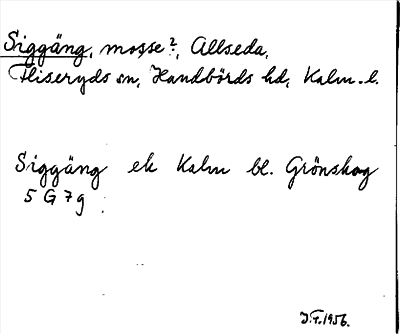 Siggäng, mosse?, Allseda,
Fliseryds sn, Handbörds hd, Kalm. l.
Siggäng ek Kalm bl. Grönskog
5 G 7 g
J.F. 1956.